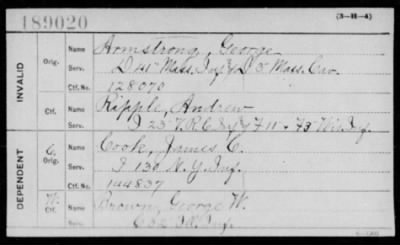 189020
(3-H-4)
INVALID
Orig. Name Armstrong, George
Serv. D 41" Mass. Inf & D 3" Mass. Cav.
Ctf. No. 128070
Ctf. Name Kipple, Andrew
Serv. I 23" V.R.C. Inf & F 11" + 73" Inf.
DEPENDENT
C. Orig. Name Cook, James C.
Serv. I 130 N.Y. Inf.
Ctf. No. 144837
W. Ctf. Name Brown, George W.
Serv. Inf.